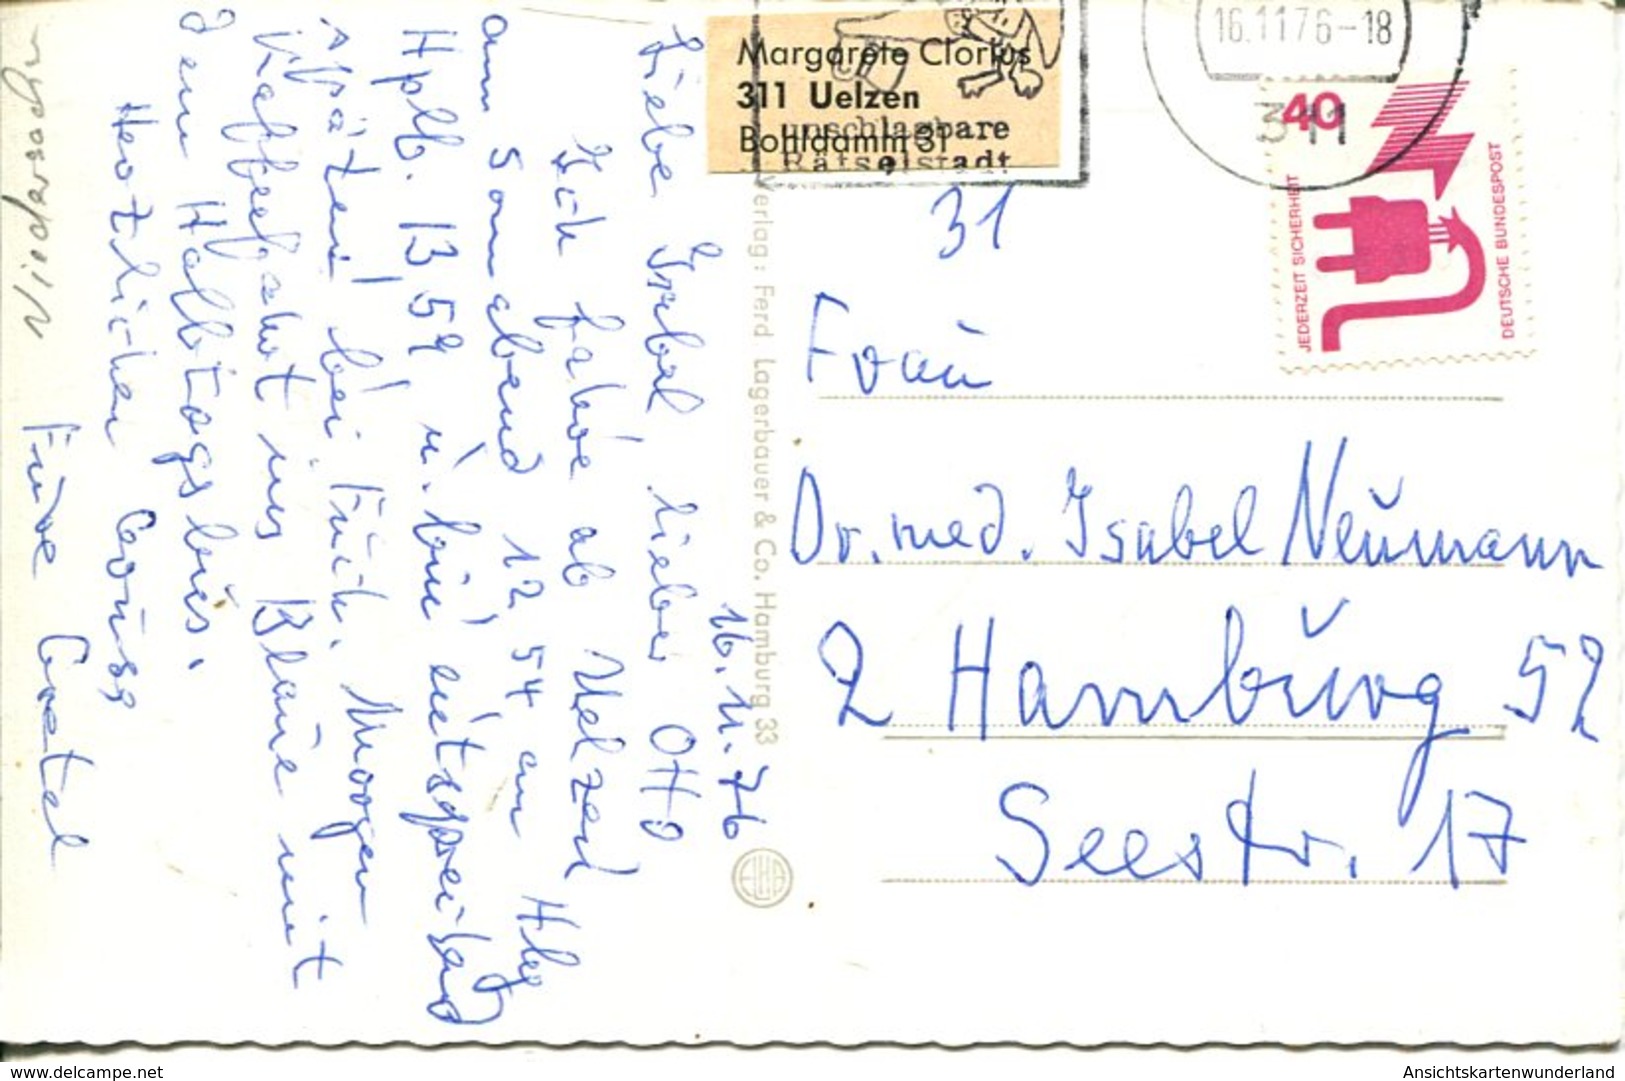 16.11.76
Liebe Isabel lieber Otto
Ich fahre ab Uelzen
am Sonnabend 12 54 an Hbg
Hptb. 13 59 u. bin entsprechend
später bei Euch. Morgen
Kaffeefahrt ins Blaue mit
dem Halbtagsbus.
Herzlichen Gruss
Eure Gretel
Niedersachs
Margarete Clorius
311 Uelzen
Bohldamm 31
unschlagbare
Rätselstadt
16.11.76-18
311
40
JEDERZEIT SICHERHEIT
DEUTSCHE BUNDESPOST
31
Frau
Dr. med. Isabel Neumann
2 Hamburg 52
Seestr. 17
Verlag: Ferd. Lagerbauer & Co. Hamburg 33
www.delcampe.net
Ansichtskartenwunderland